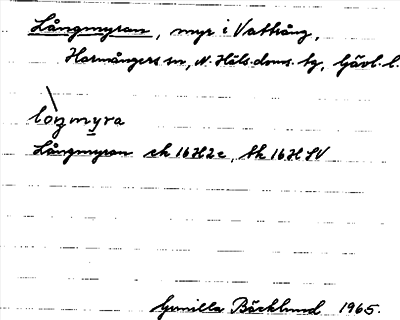 Långmyran, myr i Vattrång,
Harmångers sn, N. Häls. doms. tg, Gävl. l.
lòŋmyra
Långmyran ek 16H2c, tk 16H SV
Gunilla Bäcklund 1965.